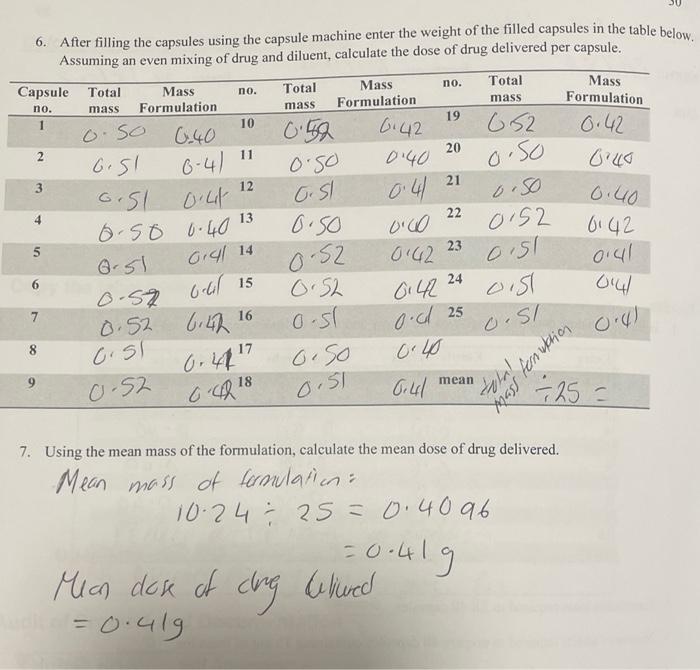 6. After filling the capsules using the capsule machine enter the weight of the filled capsules in the table below.
Assuming an even mixing of drug and diluent, calculate the dose of drug delivered per capsule.
Capsule no. Total mass Mass Formulation no. Total mass Mass Formulation no. Total mass Mass Formulation
1 0.50 0.40 10 0.52 0.42 19 0.52 0.42
2 0.51 0.41 11 0.50 0.40 20 0.50 0.40
3 0.51 0.41 12 0.51 0.41 21 0.50 0.40
4 0.50 0.40 13 0.50 0.40 22 0.52 0.42
5 0.51 0.41 14 0.52 0.42 23 0.51 0.41
6 0.52 15 0.52 0.42 24 0.51 0.41
7 0.52 0.42 16 0.51 0.41 25 0.51 0.41
8 0.51 0.41 17 0.50 0.40
9 0.52 0.42 18 0.51 0.41 mean total mass formulation ÷25 =
7. Using the mean mass of the formulation, calculate the mean dose of drug delivered.
Mean mass of formulation:
10.24 ÷ 25 = 0.4096
= 0.41g
Mean dose of drug delivered
= 0.41g